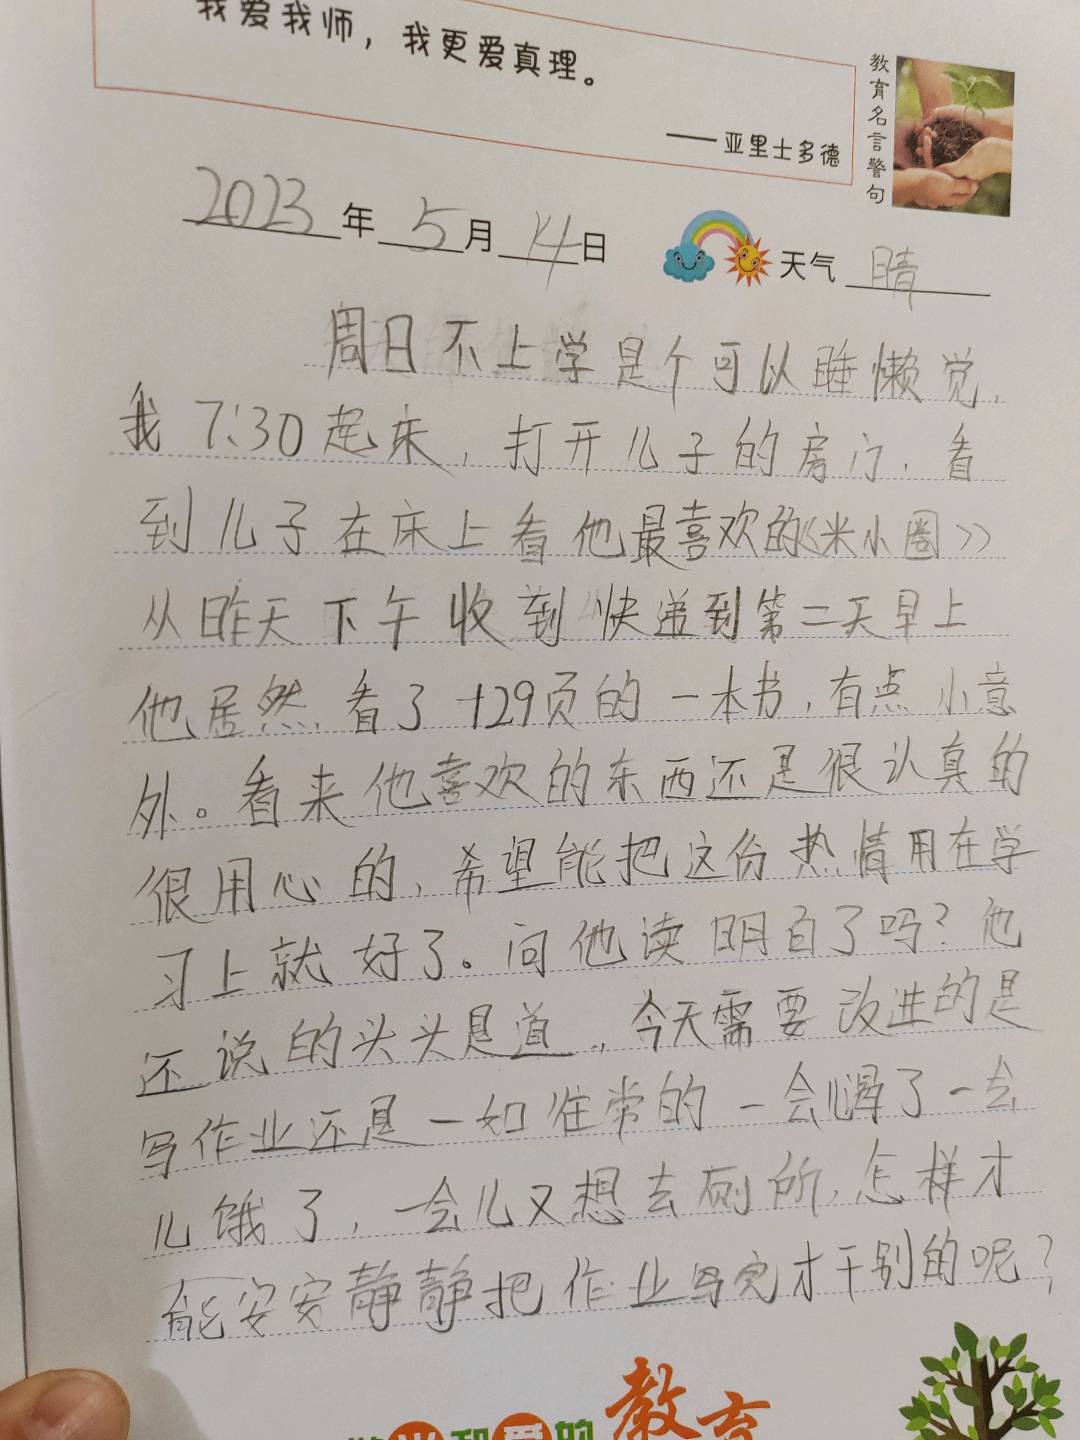 我爱我师，我更爱真理。
——亚里士多德
教育名言警句
2023年5月14日 天气 晴
周日不上学是个可以睡懒觉，
我7:30起床，打开儿子的房门，看
到儿子在床上看他最喜欢的《米小圈》
从昨天下午收到快递到第二天早上
他居然看了129页的一本书，有点小意
外。看来他喜欢的东西还是很认真的
很用心的，希望能把这份热情用在学
习上就好了。问他读明白了吗？他
还说的头头是道，今天需要改进的是
写作业还是一如往常的一会渴了一会
儿饿了，一会儿又想去厕所，怎样才
能安安静静把作业写完才干别的呢？
和爱的教育